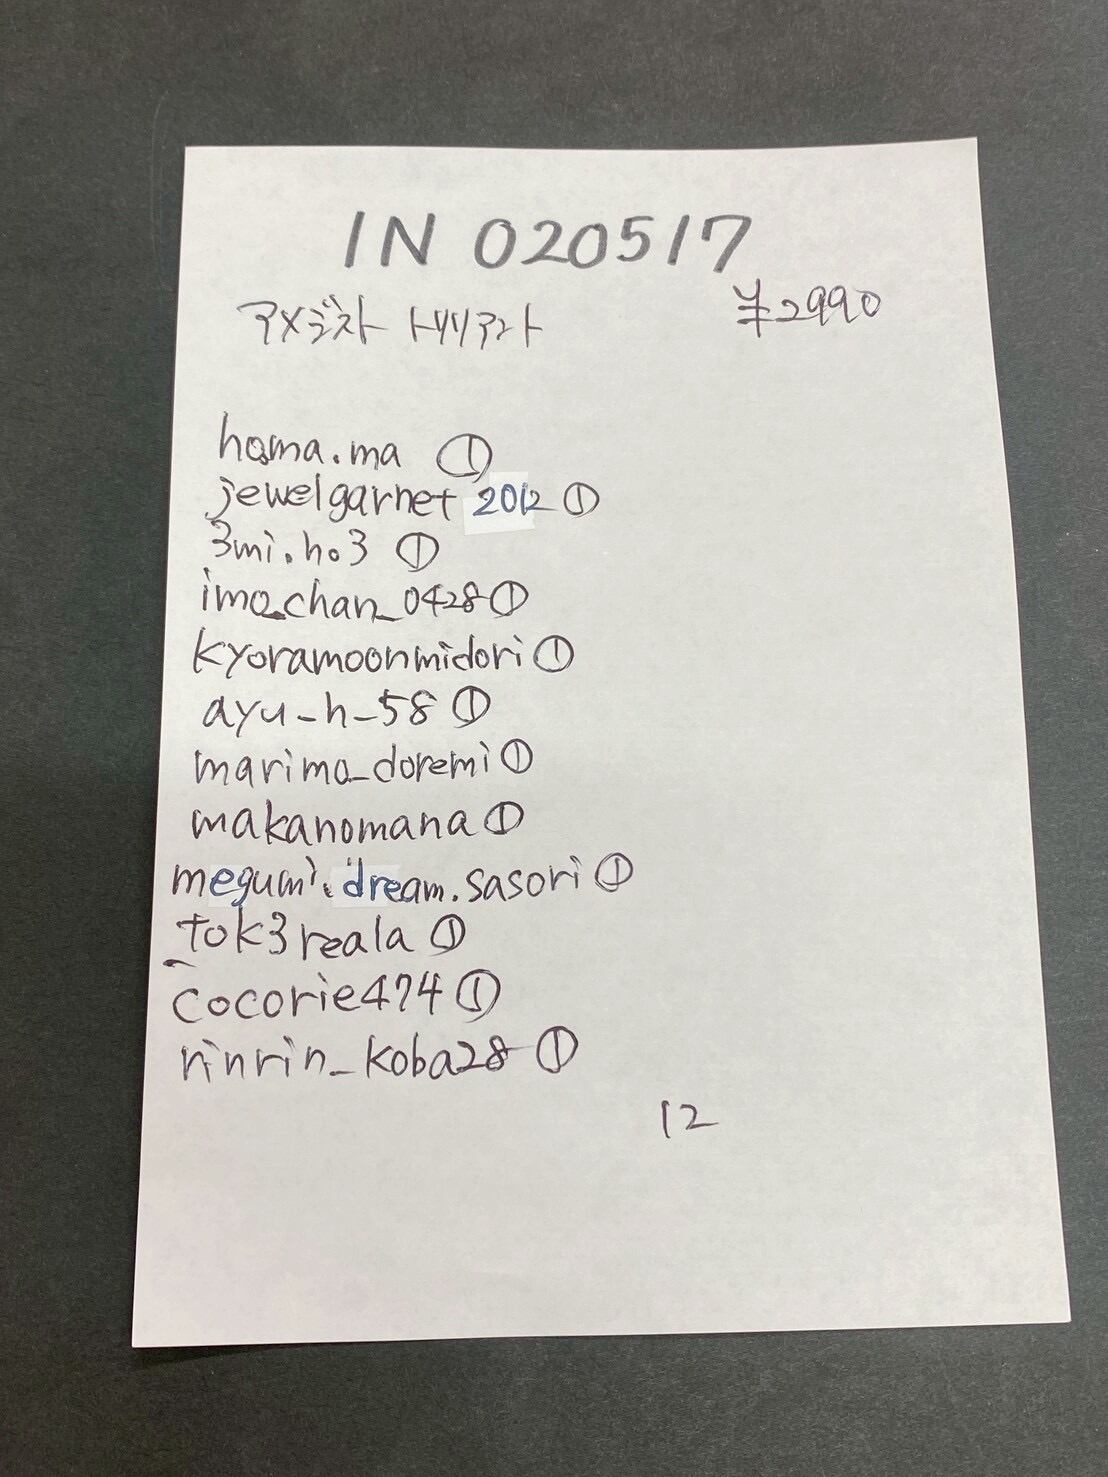 IN 020517
アメジスト トリリアント ¥2990
homa.ma ①
jewelgarnet 2012 ①
3mi.ho3 ①
imo_chan_0428 ①
kyoramoonmidori ①
ayu_h_58 ①
marimo_doremi ①
makanomana ①
megumi.dream.sasori ①
tok3reala ①
cocorie474 ①
rinrin_koba28 ①
12